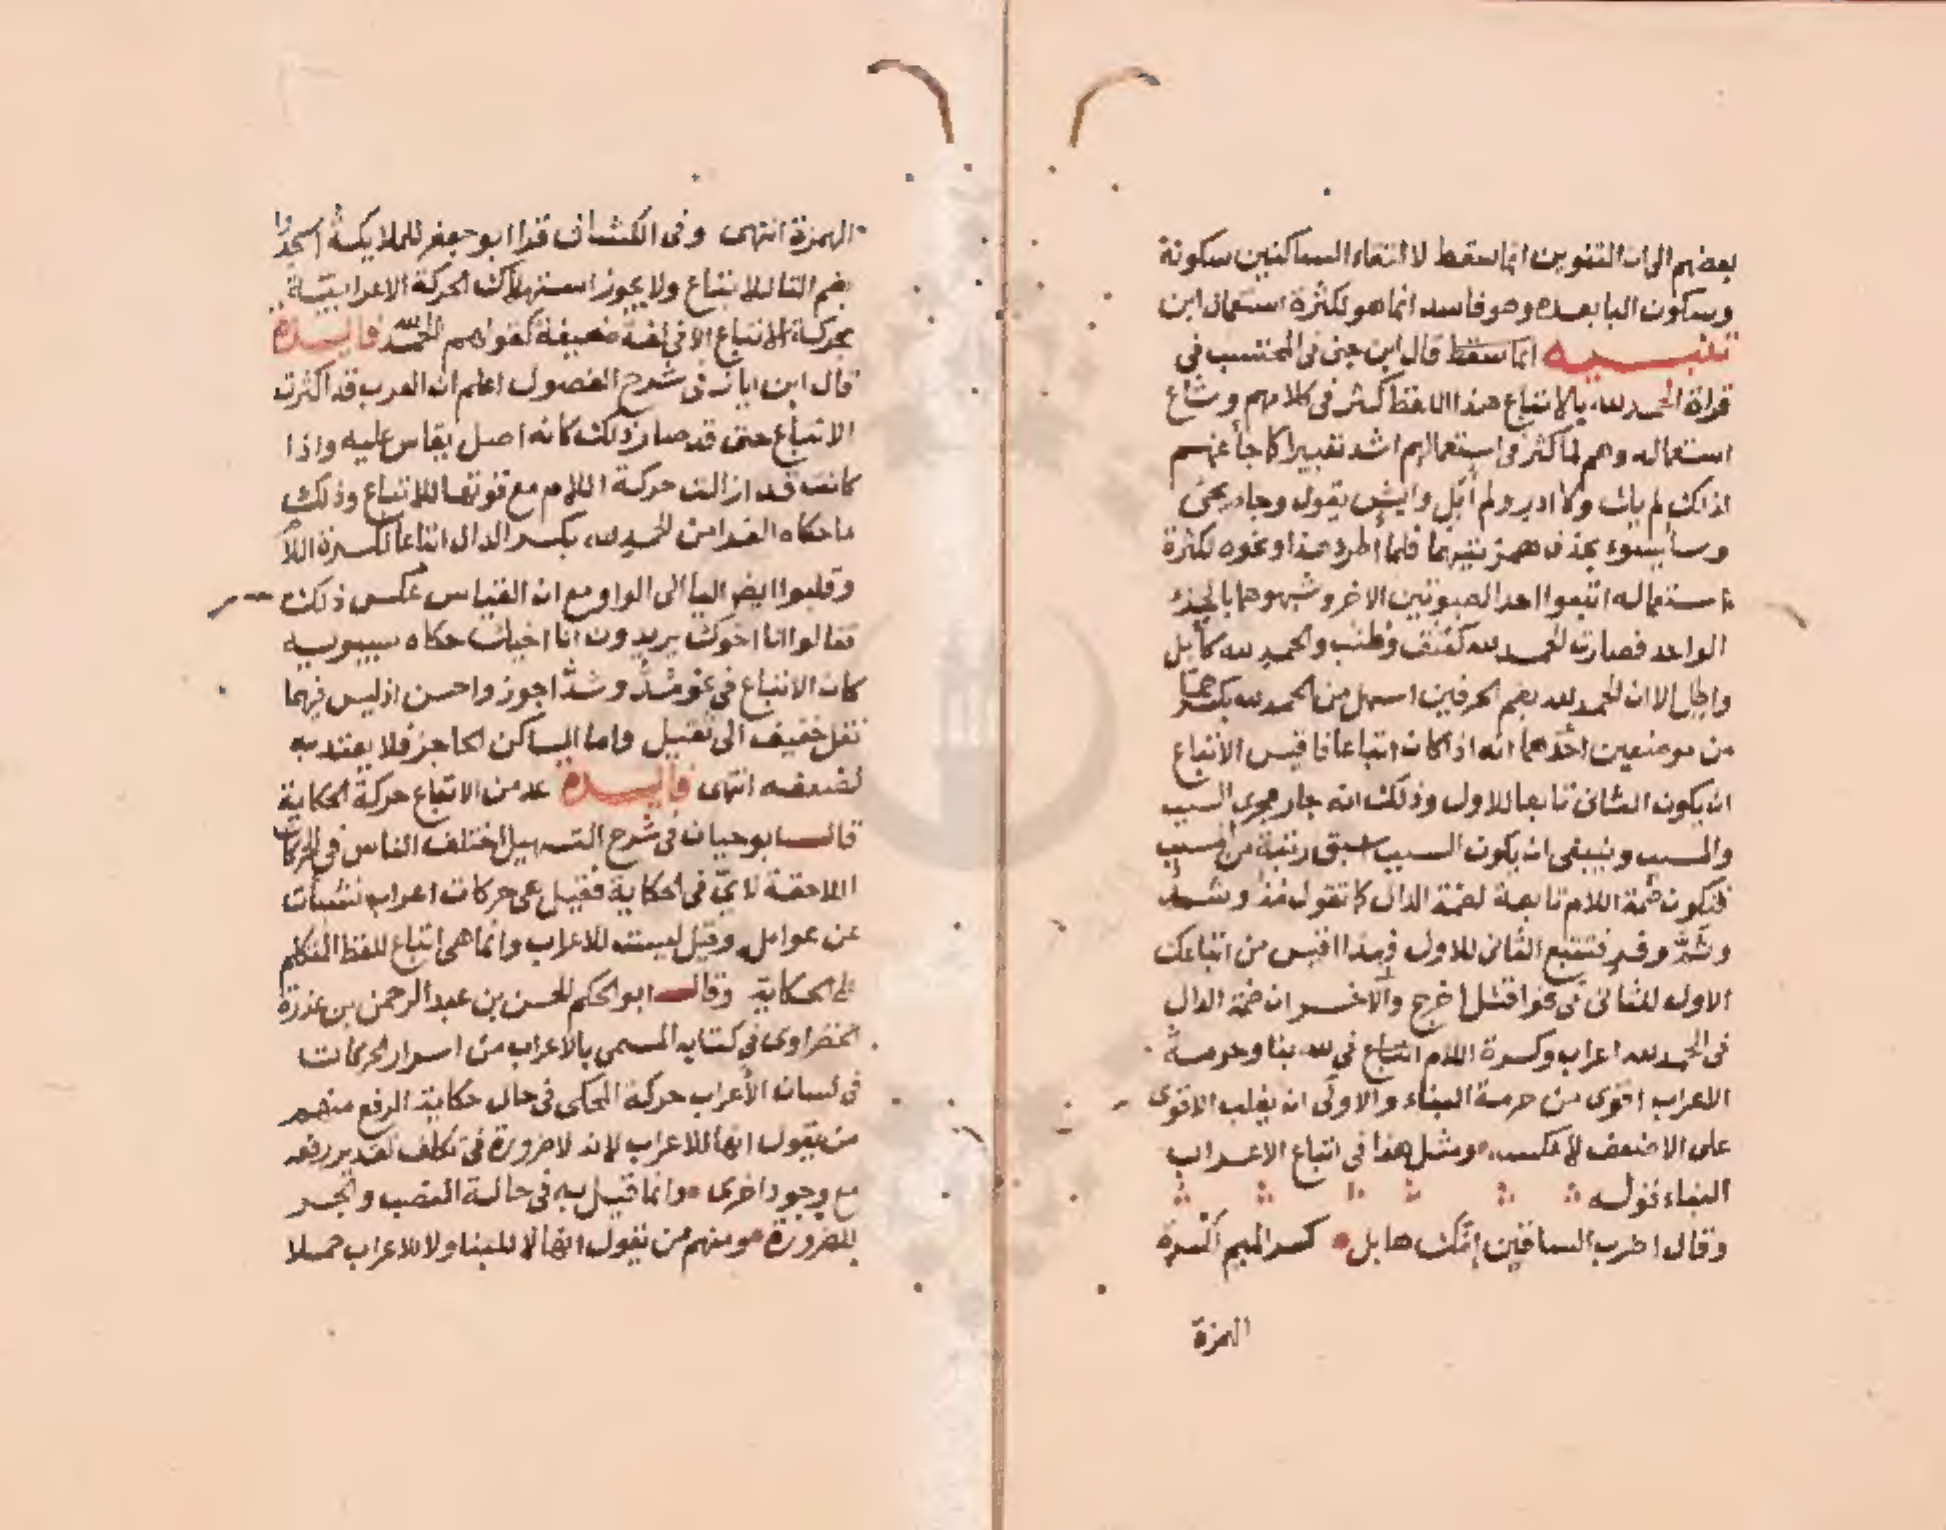 بعضهم الى ان التنوين انما سقط لالتقاء الساكنين سكونة
وسكون البا بعده وهو فاسد انما هو لكثرة استعمال ابن
تنبيه انما سقط قال ابن جنى فى المحتسب فى
قراة الحمد لله بالاتباع هذا اللفظ كثر فى كلامهم وشاع
استعماله وهم لما كثر فى استعمالهم اشد تغييرا كما جا عنهم
لذلك لم يك ولا ادر ولم ابل وايش يقول وجا يجى
وسا يسو بحذف همزتيهما فلما اطرد هذا ونحوه لكثرة
استعماله اتبعوا احد الصوتين الاخر وشبهوهما بالجزء
الواحد فصارت الحمد لله كعنق وطنب والحمد لله كابل
واطل الا ان الحمد لله بضم الحرفين اسهل من الحمد لله بكسرهما
من موضعين احدهما انه اذا كان اتباعا فاقيس الاتباع
ان يكون الثانى تابعا للاول وذلك انه جار مجرى السبب
والمسبب وينبغى ان يكون السبب اسبق رتبة من المسبب
فتكون ضمة اللام تابعة لضمة الدال كما تقول مذ وشد
وشم وفر فتتبع الثانى للاول فهذا اقيس من اتباعك
الاول للثانى فى نحو اقتل اخرج والاخر ان ضمة الدال
فى الحمد لله اعراب وكسرة اللام اتباع فى لله بنا وحرمة
الاعراب اقوى من حرمة البناء والاولى ان يغلب الاقوى
على الاضعف لا عكسه ومثل هذا فى اتباع الاعراب
البناء قوله
وقال اضرب الساقين امك هابل كسر الميم لكسرة
الهمزة
الهمزة انتهى وفى الكشاف قرا ابو جعفر للملايكة اسجدوا
بضم التا للاتباع ولا يجوز استهلاك الحركة الاعرابية
بحركة الاتباع الا فى لغة ضعيفة كقولهم الحمد لله فايدة
قال ابن اياز فى شرح الفصول اعلم ان العرب قد اكثرت
الاتباع حتى قد صار ذلك كانه اصل يقاس عليه واذا
كانت قد ازالت حركة اللام مع قوتها للاتباع وذلك
ما حكاه الفرا من الحمد لله بكسر الدال اتباعا لكسرة اللام
وقلبوا ايضا اليا الى الواو مع ان القياس عكس ذلك
فقالوا انا اخوك يريدون انا اخيك حكاه سيبويه
كان الاتباع فى نحو مذ وشد اجوز واحسن اذ ليس فيهما
نقل خفيف الى ثقيل واما الساكن الحاجز فلا يعتد به
لضعفه انتهى فايدة عد من الاتباع حركة الحكاية
قال ابو حيان فى شرح التسهيل اختلف الناس فى الحركات
اللاحقة لاىّ فى الحكاية فقيل هى حركات اعراب نشات
عن عوامل وقيل ليست للاعراب وانما هى اتباع للفظ المتكلم
على الحكاية وقال ابو الحكم الحسن بن عبد الرحمن بن عذرة
الخضراوى فى كتابه المسمى بالاعراب من اسرار الحركات
فى لسان الاعراب حركة المحكى فى حال حكاية الرفع منهم
من يقول انها للاعراب لانه لا ضرورة فى تكلف تقدير رفعه
مع وجود اخرى وانما قيل به فى حالة النصب والجر
للضرورة ومنهم من يقول انها لا للبنا ولا للاعراب حملا